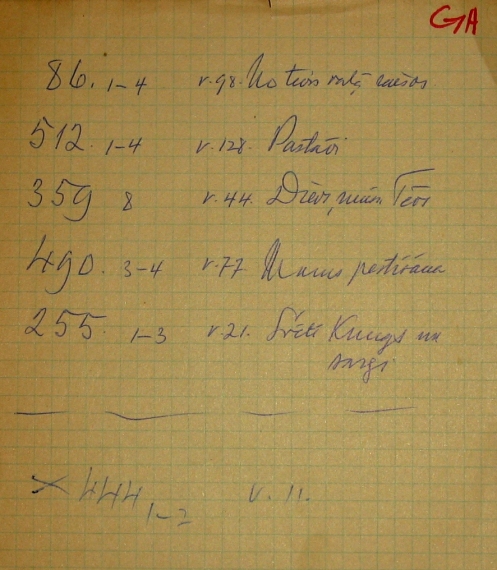 GA
86. 1-4 v.98. No tevis
512. 1-4 v.128. Pastāvi
359 8 v.44. Dievs, mūsu Tēvs
490. 3-4 v.77
255. 1-3 v.21. Svētī Kungs un
sargi
× 444 1-2 v. 11.